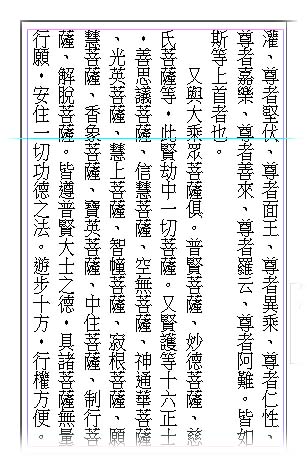 灌、尊者堅伏、尊者面王、尊者異乘、尊者仁性、
尊者嘉樂、尊者善來、尊者羅云、尊者阿難。皆如
斯等上首者也。
又與大乘眾菩薩俱。普賢菩薩、妙德菩薩、慈
氏菩薩等，此賢劫中一切菩薩。又賢護等十六正士
，善思議菩薩、信慧菩薩、空無菩薩、神通華菩薩
、光英菩薩、慧上菩薩、智幢菩薩、寂根菩薩、願
慧菩薩、香象菩薩、寶英菩薩、中住菩薩、制行菩
薩、解脫菩薩。皆遵普賢大士之德，具諸菩薩無量
行願，安住一切功德之法。遊步十方，行權方便。